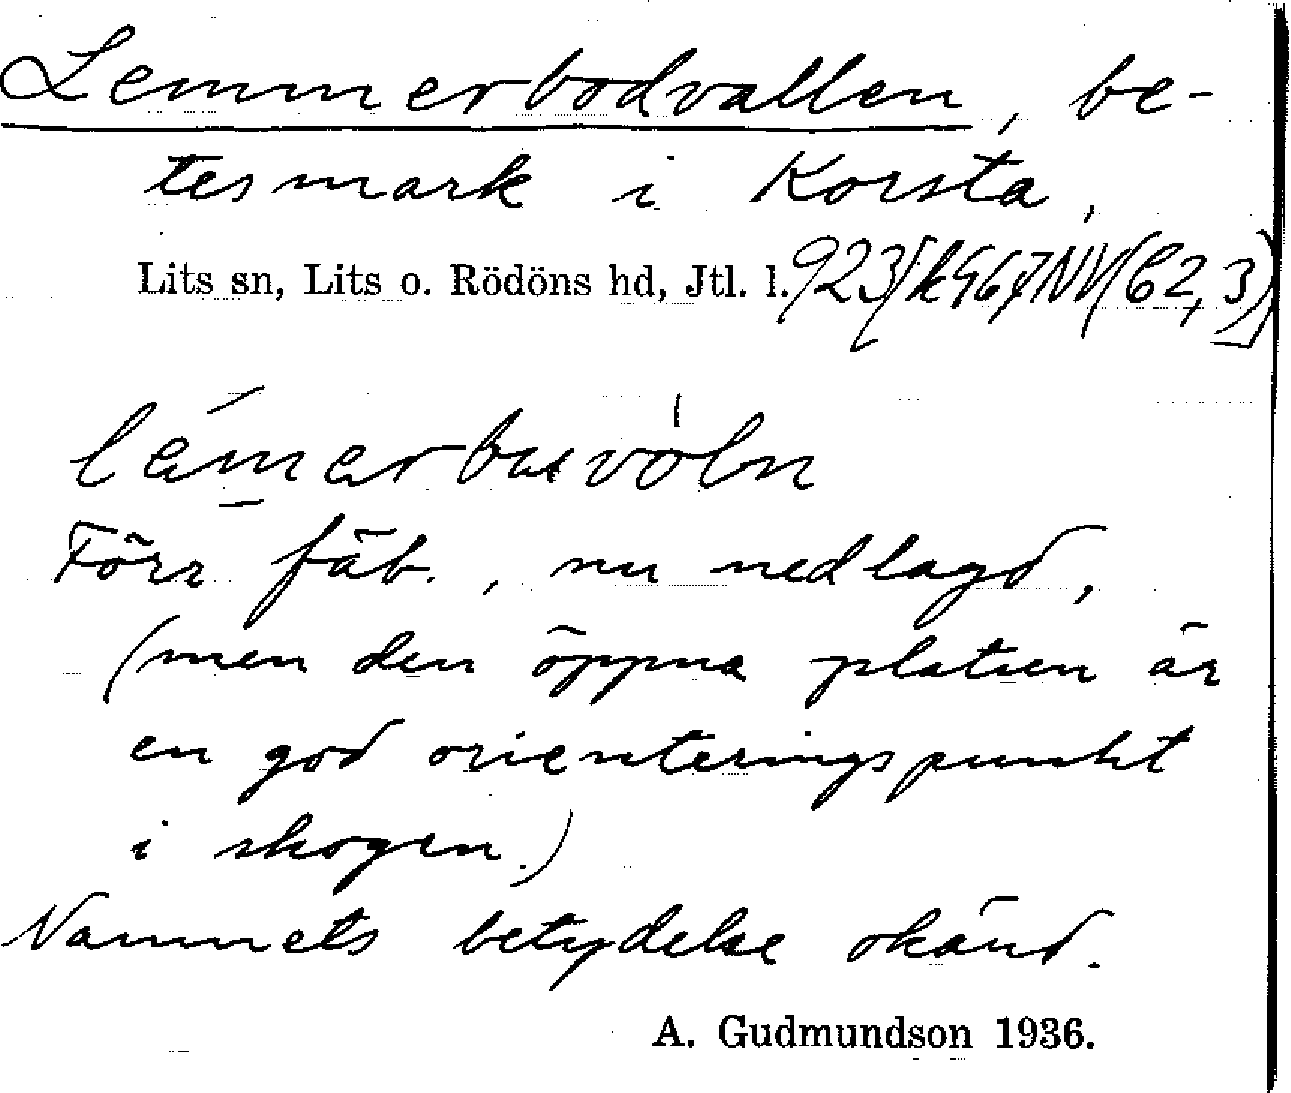 Lemmerbodvallen, be-
tesmark i Korsta,
Lits sn, Lits o. Rödöns hd, Jtl. l.
Förr fäb., nu nedlagd,
(men den öppna platsen är
en god orienteringspunkt
i skogen.)
Namnets betydelse okänd.
A. Gudmundson 1936.